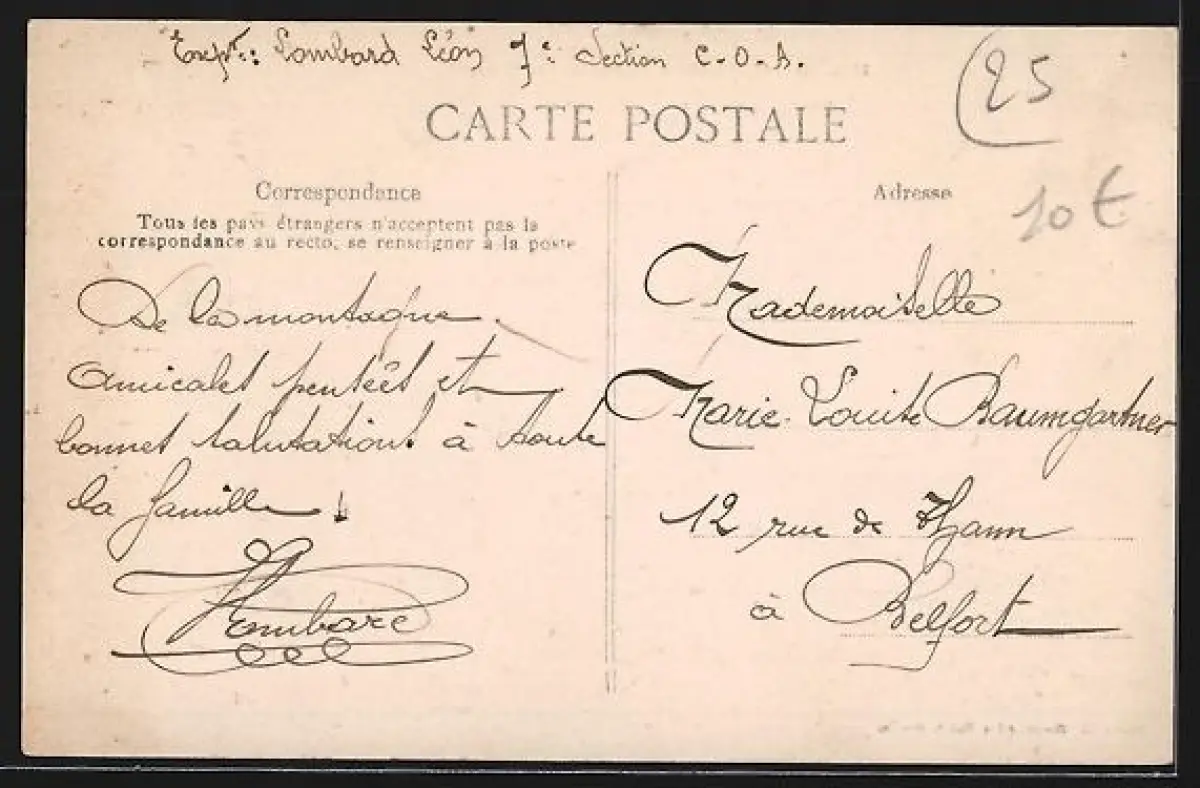 Expr.: Lombard Léon 7e: Section C.O.A.
25
CARTE POSTALE
10€
Correspondance
Tous les pays étrangers n'acceptent pas la
correspondance au recto, se renseigner à la poste
De la montagne.
amicales pensées et
bonnes salutations à toute
la famille!
Lombard
Adresse
Mademoiselle
Marie-Louise Baumgartner
12 rue de Thann
à Belfort